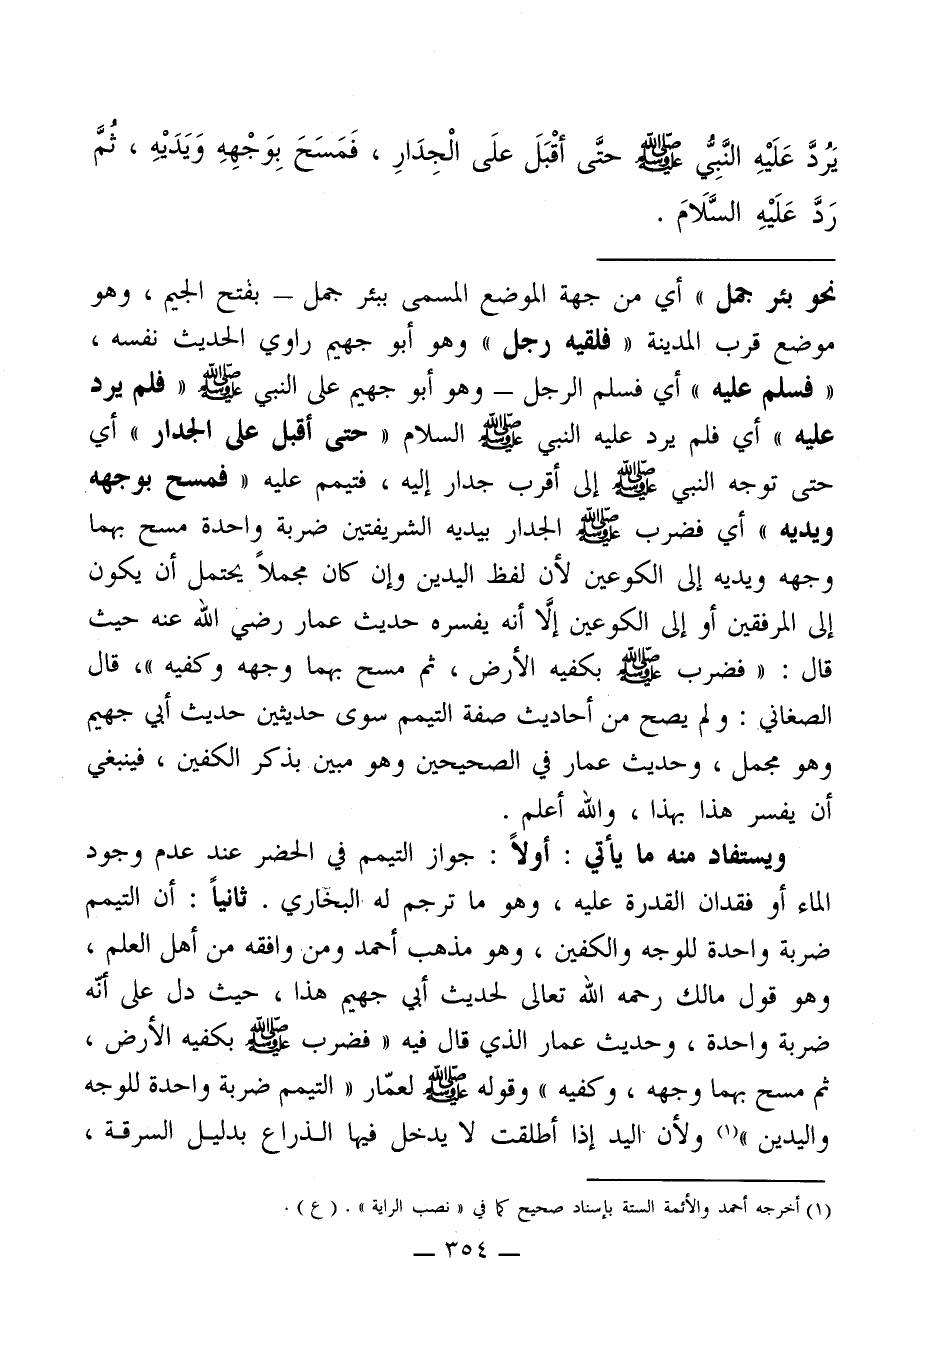 يَرُدَّ عَلَيْهِ النَّبِيُّ ﷺ حتَّى أقْبَلَ علَى الْجِدَارِ ، فَمَسَحَ بِوَجْهِهِ وَيَدَيْهِ ، ثُمَّ
رَدَّ عَلَيْهِ السَّلَامَ .
نحو بئر جمل » أي من جهة الموضع المسمى ببئر جمل – بفتح الجيم ، وهو
موضع قرب المدينة « فلقيه رجل » وهو أبو جهيم راوي الحديث نفسه ،
« فسلم عليه » أي فسلم الرجل – وهو أبو جهيم على النبي ﷺ « فلم يرد
عليه » أي فلم يرد عليه النبي ﷺ السلام « حتى أقبل على الجدار » أي
حتى توجه النبي ﷺ إلى أقرب جدار إليه ، فتيمم عليه « فمسح بوجهه
ويديه » أي فضرب ﷺ الجدار بيديه الشريفتين ضربة واحدة مسح بهما
وجهه ويديه إلى الكوعين لأن لفظ اليدين وإن كان مجملاً يحتمل أن يكون
إلى المرفقين أو إلى الكوعين إلَّا أنه يفسره حديث عمار رضي الله عنه حيث
قال : « فضرب ﷺ بكفيه الأرض ، ثم مسح بهما وجهه وكفيه »، قال
الصغاني : ولم يصح من أحاديث صفة التيمم سوى حديثين حديث أبي جهيم
وهو مجمل ، وحديث عمار في الصحيحين وهو مبين بذكر الكفين ، فينبغي
أن يفسر هذا بهذا ، والله أعلم .
ويستفاد منه ما يأتي : أولاً : جواز التيمم في الحضر عند عدم وجود
الماء أو فقدان القدرة عليه ، وهو ما ترجم له البخاري . ثانياً : أن التيمم
ضربة واحدة للوجه والكفين ، وهو مذهب أحمد ومن وافقه من أهل العلم ،
وهو قول مالك رحمه الله تعالى لحديث أبي جهيم هذا ، حيث دل على أنّه
ضربة واحدة ، وحديث عمار الذي قال فيه « فضرب ﷺ بكفيه الأرض ،
ثم مسح بهما وجهه ، وكفيه » وقوله ﷺ لعمّار « التيمم ضربة واحدة للوجه
واليدين »(١) ولأن اليد إذا أطلقت لا يدخل فيها الذراع بدليل السرقة ،
(١) أخرجه أحمد والأئمة الستة بإسناد صحيح كما في « نصب الراية » . ( ع ) .
— ٣٥٤ —